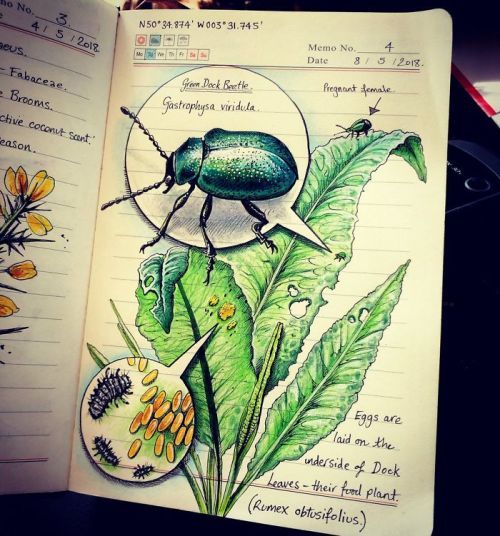 mo No. 3.
4 / 5 / 2018
eus.
- Fabaceae.
e Brooms.
ctive coconut scent.
eason.
N50°34.874' W003°31.745'
Mo Tu We Th Fr Sa Su
Memo No. 4
Date 8 / 5 / 2018.
Green Dock Beetle.
Gastrophysa viridula.
Pregnant female
Eggs are
laid on the
underside of Dock
Leaves - their food plant.
(Rumex obtusifolius.)